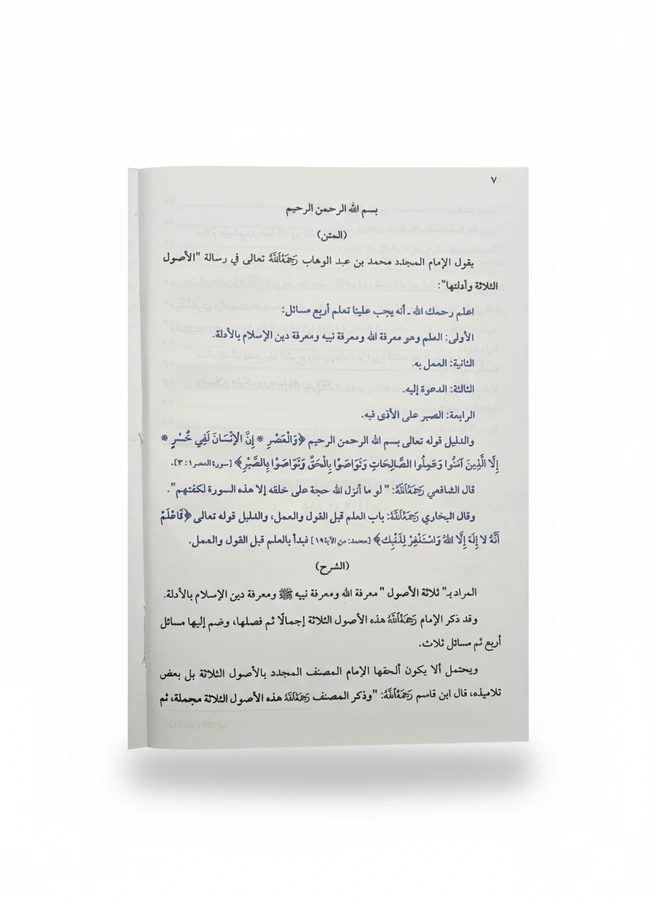 ٧
بسم الله الرحمن الرحيم
(المتن)
يقول الإمام المجدد محمد بن عبد الوهاب رَحِمَهُ اللَّهُ تعالى في رسالة "الأصول
الثلاثة وأدلتها":
اعلم رحمك الله ـ أنه يجب علينا تعلم أربع مسائل:
الأولى: العلم وهو معرفة الله ومعرفة نبيه ومعرفة دين الإسلام بالأدلة.
الثانية: العمل به.
الثالثة: الدعوة إليه.
الرابعة: الصبر على الأذى فيه.
والدليل قوله تعالى بسم الله الرحمن الرحيم ﴿وَالْعَصْرِ * إِنَّ الْإِنْسَانَ لَفِي خُسْرٍ *
إِلَّا الَّذِينَ آمَنُوا وَعَمِلُوا الصَّالِحَاتِ وَتَوَاصَوْا بِالْحَقِّ وَتَوَاصَوْا بِالصَّبْرِ﴾ [سورة العصر ١: ٣].
قال الشافعي رَحِمَهُ اللَّهُ: "لو ما أنزل الله حجة على خلقه إلا هذه السورة لكفتهم".
وقال البخاري رَحِمَهُ اللَّهُ: باب العلم قبل القول والعمل، والدليل قوله تعالى ﴿فَاعْلَمْ
أَنَّهُ لا إِلَهَ إِلَّا اللهُ وَاسْتَغْفِرْ لِذَنْبِكَ﴾ [محمد: من الآية ١٩] فبدأ بالعلم قبل القول والعمل.
(الشرح)
المراد بـ" ثلاثة الأصول " معرفة الله ومعرفة نبيه ﷺ ومعرفة دين الإسلام بالأدلة.
وقد ذكر الإمام رَحِمَهُ اللَّهُ هذه الأصول الثلاثة إجمالًا ثم فصلها، وضم إليها مسائل
أربع ثم مسائل ثلاث.
ويحتمل ألا يكون ألحقها الإمام المصنف المجدد بالأصول الثلاثة بل بعض
تلاميذه، قال ابن قاسم رَحِمَهُ اللَّهُ: "وذكر المصنف رَحِمَهُ اللَّهُ هذه الأصول الثلاثة مجملة، ثم